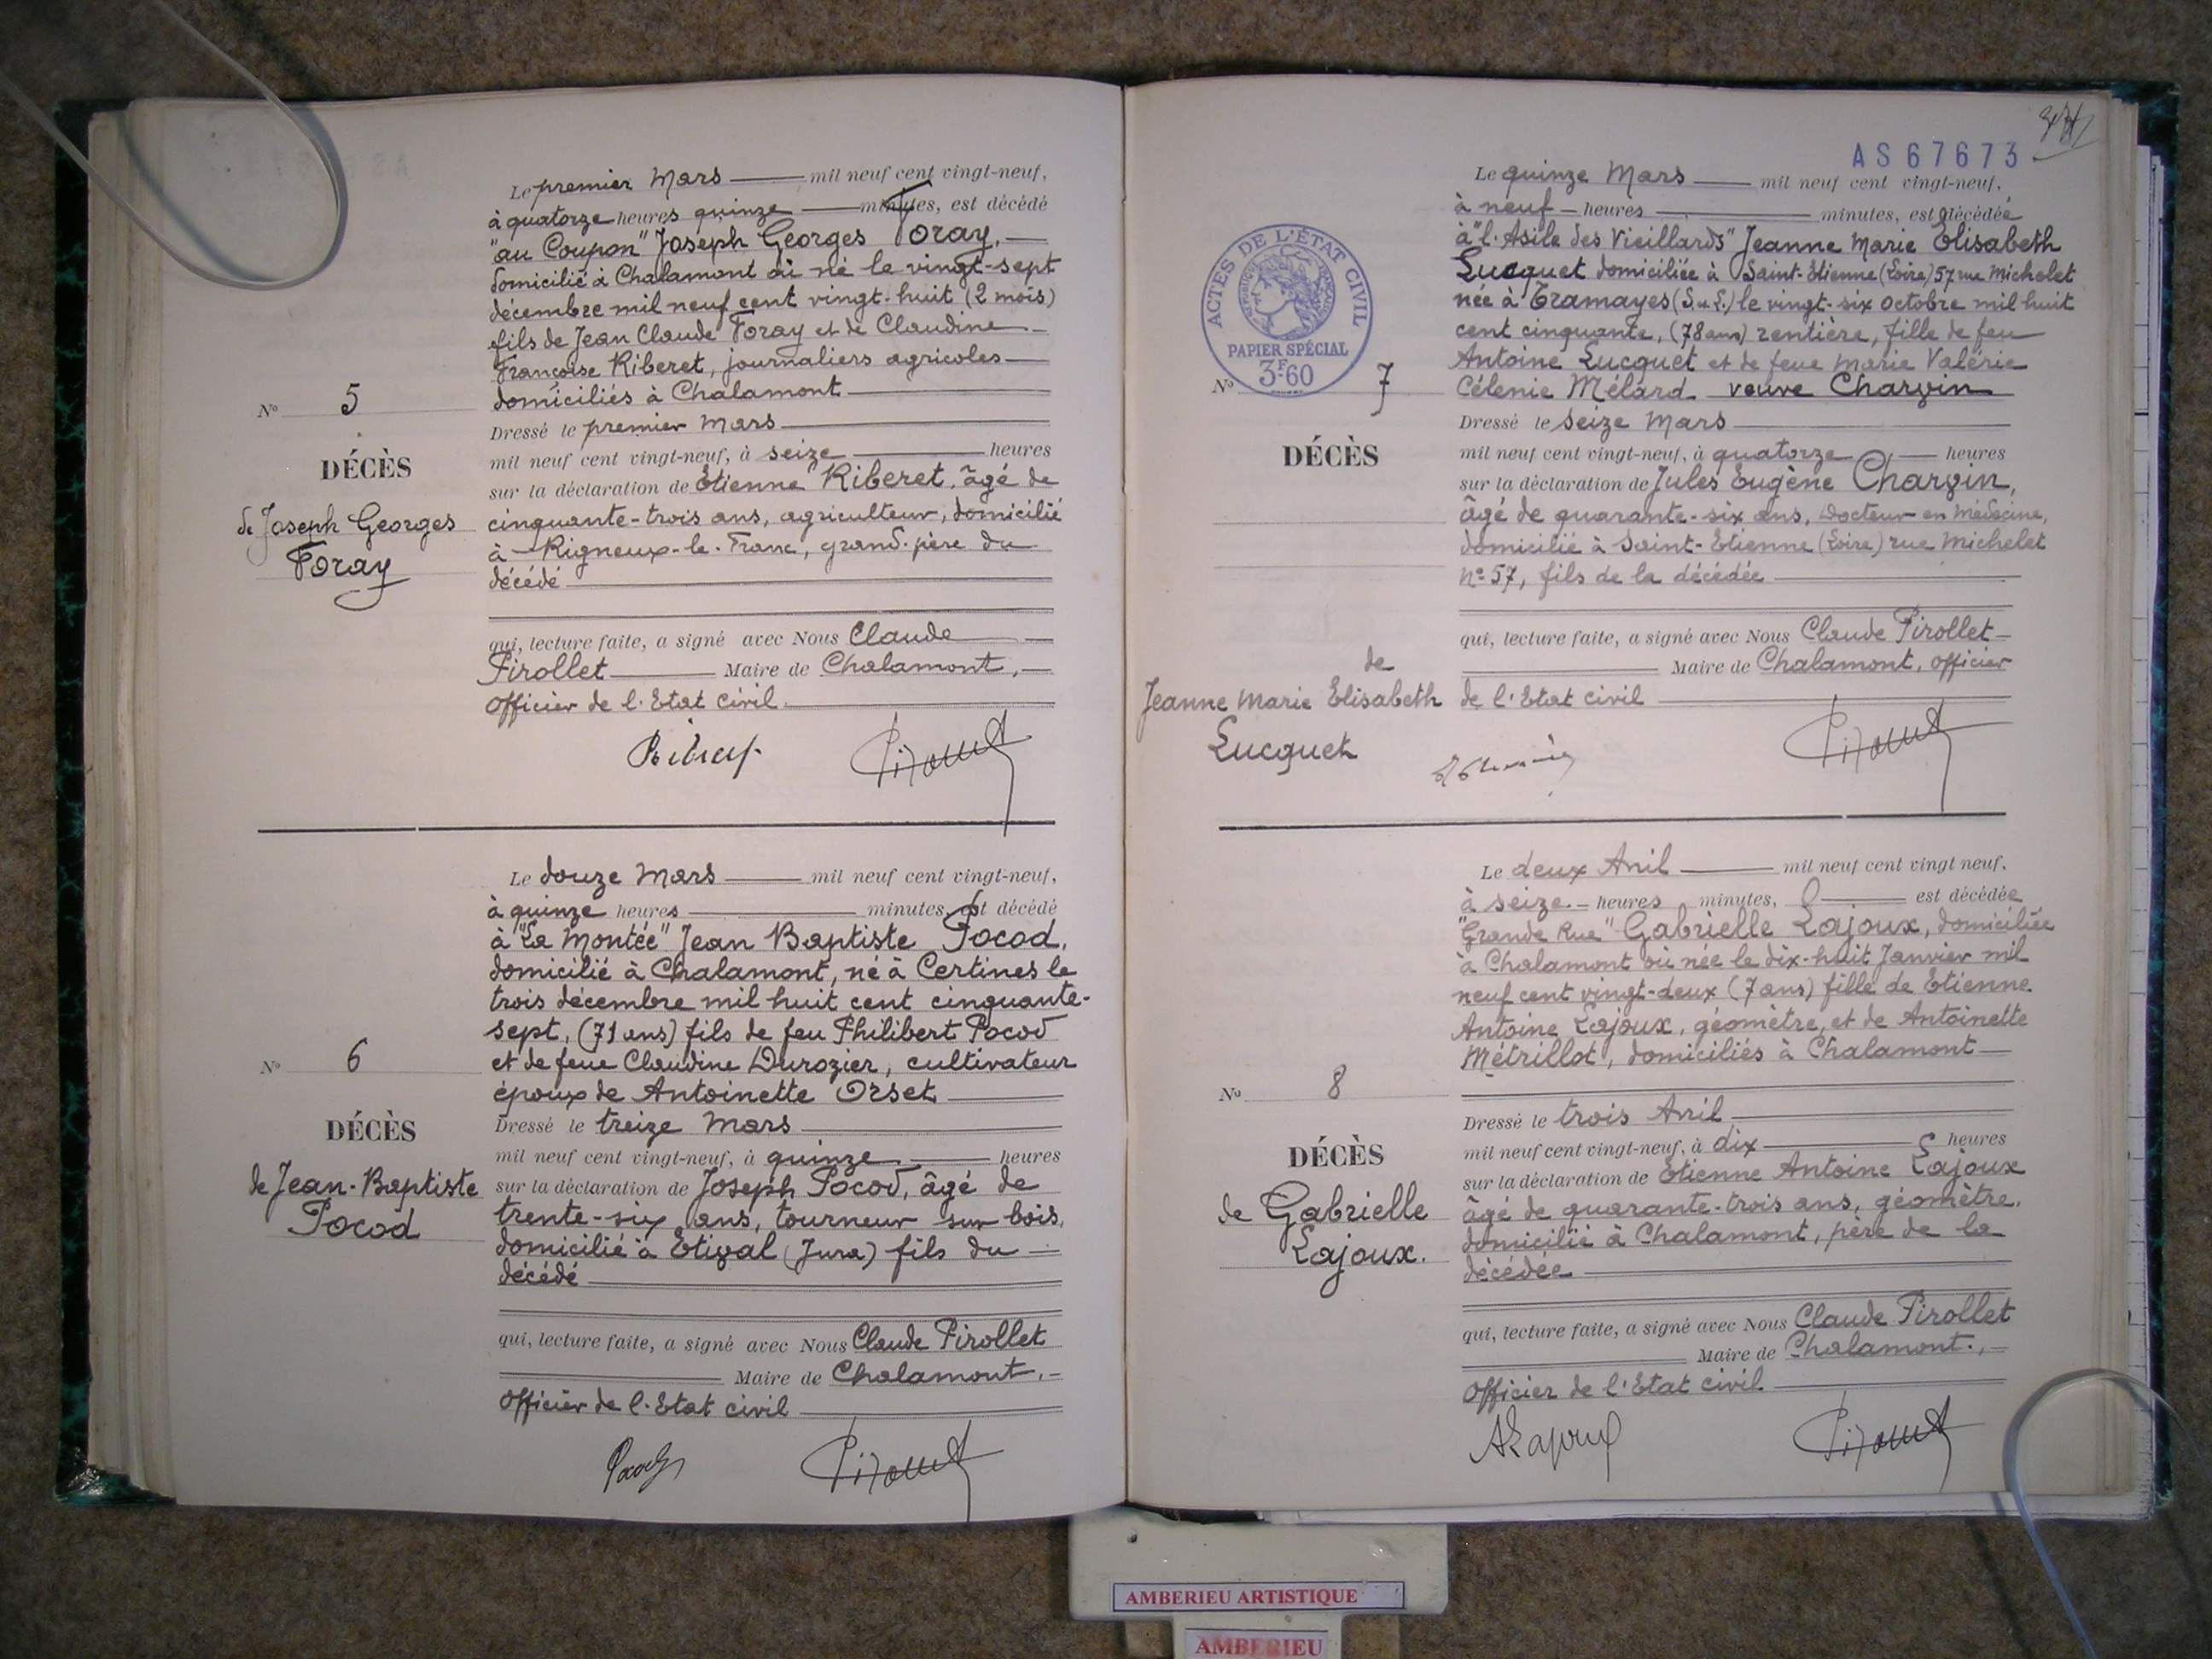 Le premier Mars mil neuf cent vingt-neuf,
à quatorze heures quinze minutes, est décédé
"au Coupon" Joseph Georges Foray,
domicilié à Chalamont où né le vingt-sept
décembre mil neuf cent vingt-huit (2 mois)
fils de Jean Claude Foray et de Claudine
Françoise Riberet, journaliers agricoles
domiciliés à Chalamont
N° 5
Dressé le premier Mars
DÉCÈS
mil neuf cent vingt-neuf, à seize heures
sur la déclaration de Etienne Riberet, âgé de
de Joseph Georges
Foray
cinquante-trois ans, agriculteur, domicilié
à Rigneux-le-Franc, grand-père du
décédé
qui, lecture faite, a signé avec Nous Claude
Pirollet Maire de Chalamont,
officier de l'Etat civil.
Riberet Pirollet
Le douze Mars mil neuf cent vingt-neuf,
à quinze heures minutes, est décédé
à "La Montée" Jean Baptiste Pocod,
domicilié à Chalamont, né à Certines le
trois décembre mil huit cent cinquante-
sept, (71 ans) fils de feu Philibert Pocod
et de feue Claudine Durozier, cultivateur
époux de Antoinette Orset
N° 6
Dressé le treize Mars
DÉCÈS
mil neuf cent vingt-neuf, à quinze heures
de Jean-Baptiste
Pocod
sur la déclaration de Joseph Pocod, âgé de
trente-six ans, tourneur sur bois,
domicilié à Etival (Jura) fils du
décédé
qui, lecture faite, a signé avec Nous Claude Pirollet
Maire de Chalamont,
officier de l'Etat civil
Pocod Pirollet
AS67673
Le quinze Mars mil neuf cent vingt-neuf,
à neuf heures minutes, est décédée
à "l'Asile des Vieillards" Jeanne Marie Elisabeth
Lucquet domiciliée à Saint-Etienne (Loire) 57 rue Michelet
née à Tramayes (S.&L.) le vingt-six octobre mil huit
cent cinquante, (78 ans) rentière, fille de feu
Antoine Lucquet et de feue Marie Valérie
Célenie Mélard veuve Charvin
ACTES DE L'ÉTAT CIVIL
RÉPUBLIQUE FRANÇAISE
PAPIER SPÉCIAL
3F60
N° 7
Dressé le seize Mars
DÉCÈS
mil neuf cent vingt-neuf, à quatorze heures
sur la déclaration de Jules Eugène Charvin,
âgé de quarante-six ans, Docteur en Médecine,
domicilié à Saint-Etienne (Loire) rue Michelet
n° 57, fils de la décédée
qui, lecture faite, a signé avec Nous Claude Pirollet
Maire de Chalamont, officier
de
Jeanne Marie Elisabeth
Lucquet
de l'Etat civil
Pirollet
Le deux Avril mil neuf cent vingt neuf.
à seize heures minutes, est décédée
"Grande Rue" Gabrielle Lajoux, domiciliée
à Chalamont où née le dix-huit Janvier mil
neuf cent vingt-deux (7 ans) fille de Etienne
Antoine Lajoux, géomètre, et de Antoinette
Métrillot, domiciliés à Chalamont
N° 8
Dressé le trois Avril
DÉCÈS
mil neuf cent vingt-neuf, à dix heures
de Gabrielle
Lajoux.
sur la déclaration de Etienne Antoine Lajoux
âgé de quarante-trois ans, géomètre,
domicilié à Chalamont, père de la
décédée
qui, lecture faite, a signé avec Nous Claude Pirollet
Maire de Chalamont,
officier de l'Etat civil
ALajoux Pirollet
AMBERIEU ARTISTIQUE
AMBERIEU